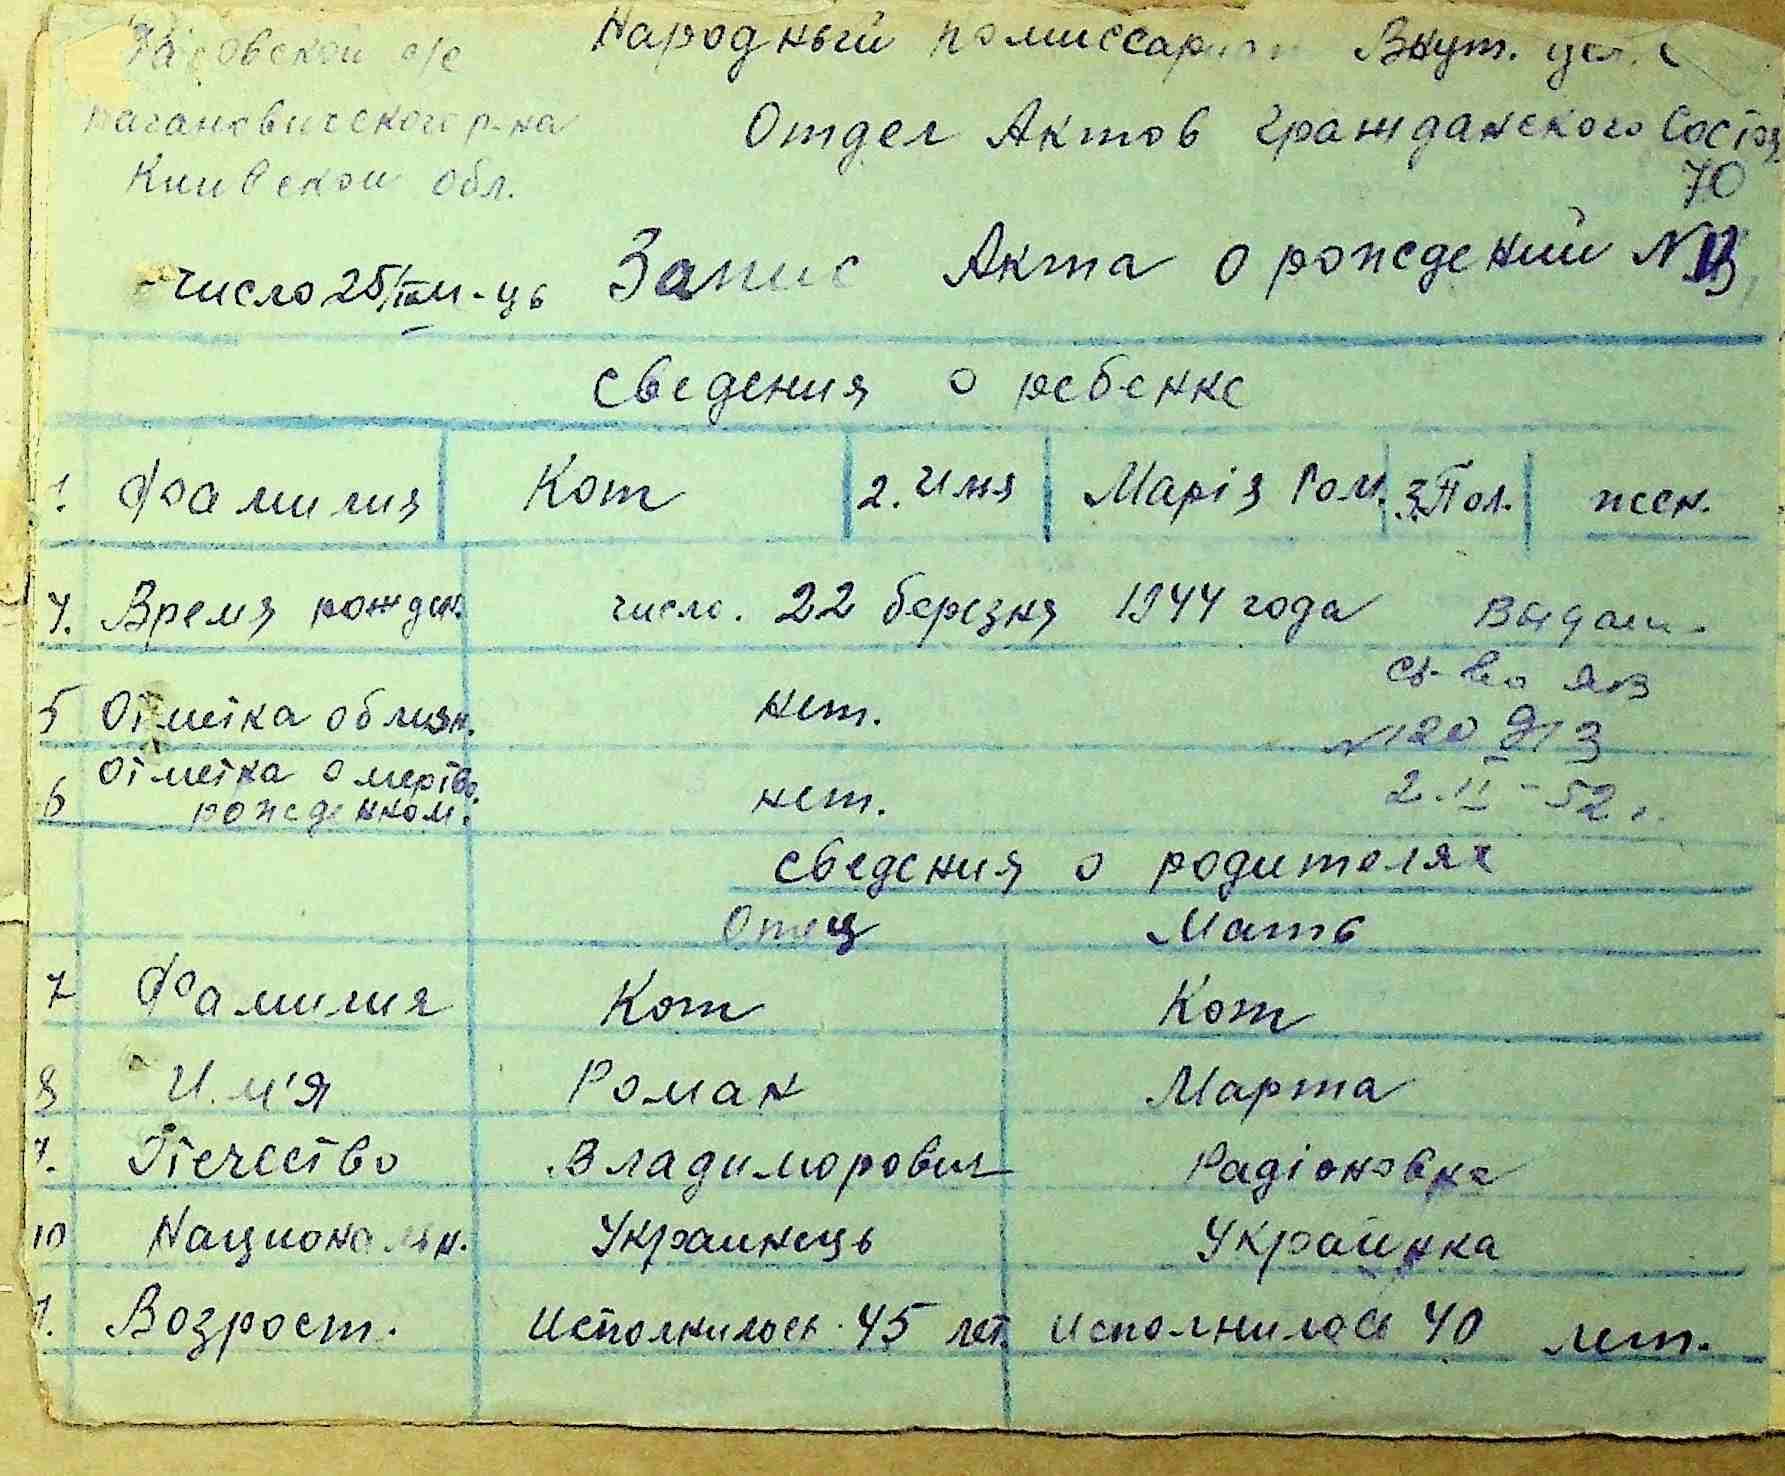 с/с Народный комиссариат Внут. дел.
Кагановичского р-на Отдел Актов Гражданского Состоя
Киивской обл. 70
Число 25/III м-ць Запис Акта о рождений N 13
Сведения о ребенке
1. Фамилия Кот 2. Имя Марія Ром. 3. Пол. жен.
4. Время рожден. число. 22 березня 1944 года Выдан.
св-во
5 Отметка о близн. нет. N 120
6 Отметка о мертво рожденном. нет. 2.II-52 г.
Сведения о родителях
Отец Мать
7 Фамилия Кот Кот
8 Им'я Роман Марта
9. Отечество Владиморович Радіоновна
10 Национальн. Украинець Украинка
1. Возрост. Исполнилось 45 лет. Исполнилось 40 лет.